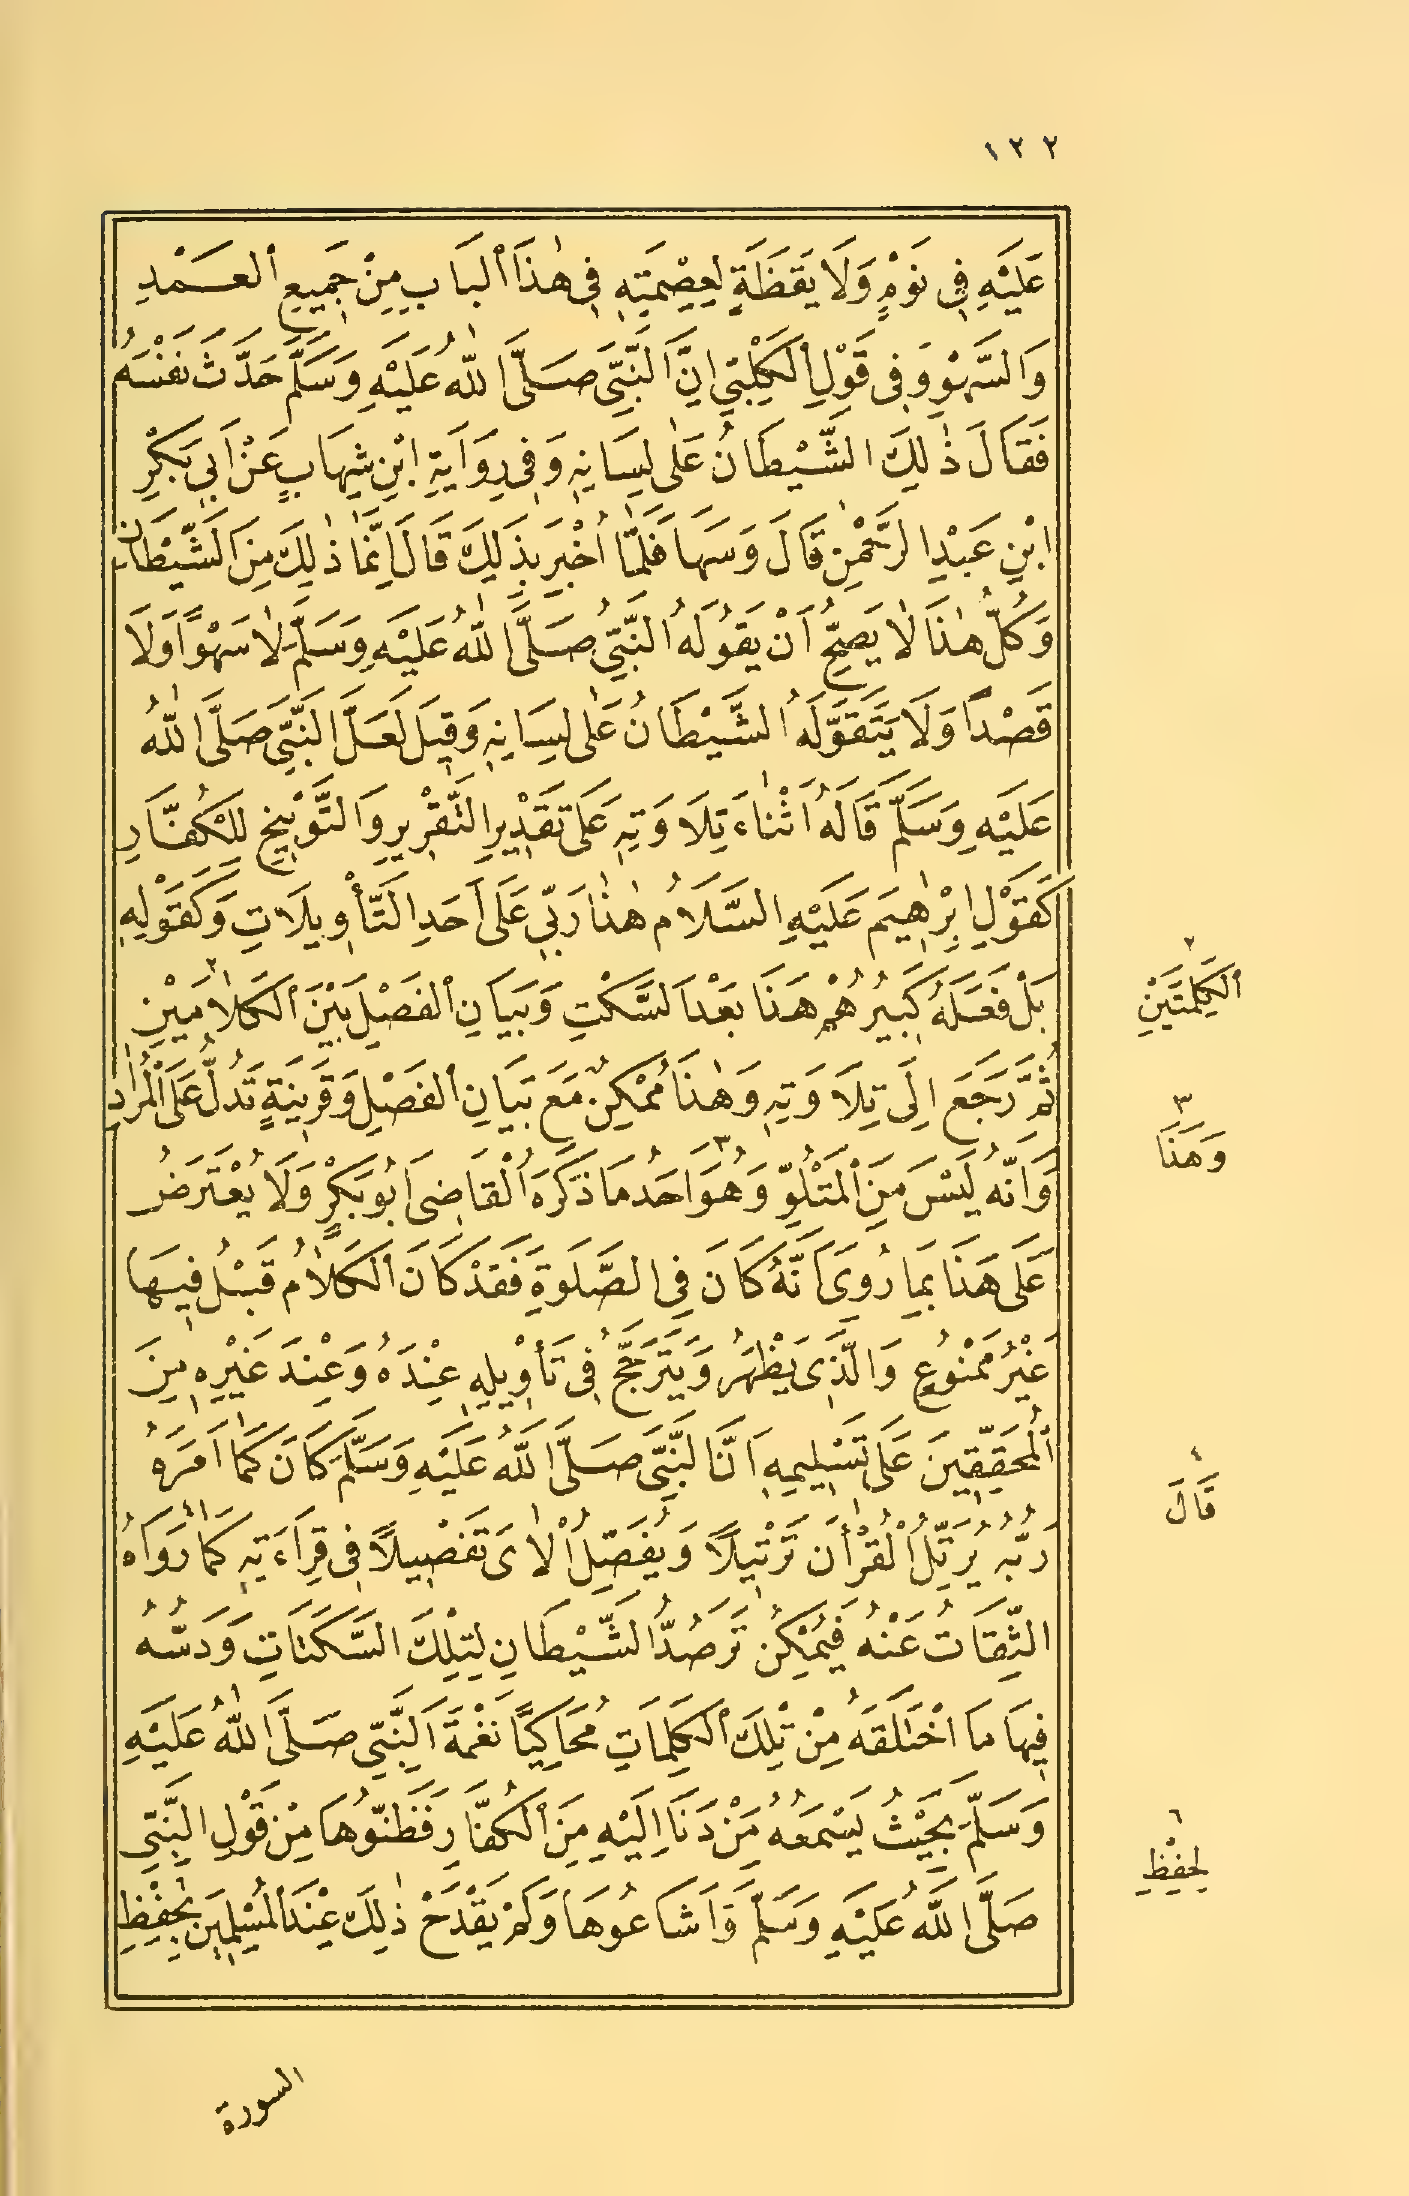 ١٢٢
عَلَيْهِ فِى نَوْمٍ وَلَا يَقَظَةٍ لِعِصْمَتِهِ فِى هٰذَا الْبَابِ مِنْ جَمِيعِ الْعَمْدِ
وَالسَّهْوِ وَفِى قَوْلِ الْكَلْبِيِّ اِنَّ النَّبِىَّ صَلَّى اللهُ عَلَيْهِ وَسَلَّمَ حَدَّثَ نَفْسَهُ
فَقَالَ ذٰلِكَ الشَّيْطَانُ عَلٰى لِسَانِهِ وَفِى رِوَايَةِ ابْنِ شِهَابٍ عَنْ اَبِى بَكْرِ
ابْنِ عَبْدِ الرَّحْمٰنِ قَالَ وَسَهَا فَلَمَّا اُخْبِرَ بِذَلِكَ قَالَ اِنَّمَا ذٰلِكَ مِنَ الشَّيْطَانِ
وَكُلُّ هٰذَا لَا يَصِحُّ اَنْ يَقُولَهُ النَّبِىُّ صَلَّى اللهُ عَلَيْهِ وَسَلَّمَ لَا سَهْوًا وَلَا
قَصْدًا وَلَا يَتَقَوَّلَهُ الشَّيْطَانُ عَلٰى لِسَانِهِ وَقِيلَ لَعَلَّ النَّبِىَّ صَلَّى اللهُ
عَلَيْهِ وَسَلَّمَ قَالَهُ اَثْنَاءَ تِلَاوَتِهِ عَلَى تَقْدِيرِ التَّقْرِيرِ وَالتَّوْبِيخِ لِلْكُفَّارِ
كَقَوْلِ اِبْرٰهِيمَ عَلَيْهِ السَّلَامُ هٰذَا رَبِّى عَلَى اَحَدِ التَّأْوِيلَاتِ وَكَقَوْلِهِ
بَلْ فَعَلَهُ كَبِيرُهُمْ هَذَا بَعْدَ السَّكْتِ وَبَيَانِ الْفَصْلِ بَيْنَ الْكَلَامَيْنِ ٢
ثُمَّ رَجَعَ اِلَى تِلَاوَتِهِ وَهٰذَا مُمْكِنٌ مَعَ بَيَانِ الْفَصْلِ وَقَرِينَةٍ تَدُلُّ عَلَى الْمُرَادِ
وَاَنَّهُ لَيْسَ مِنَ الْمَتْلُوِّ وَهُوَ ٣ اَحَدُ مَا ذَكَرَهُ الْقَاضِى اَبُو بَكْرٍ وَلَا يُعْتَرَضُ
عَلَى هَذَا بِمَا رُوِىَ اَنَّهُ كَانَ فِى الصَّلَوةِ فَقَدْ كَانَ الْكَلَامُ قَبْلُ فِيهَا
غَيْرُ مَمْنُوعٍ وَالَّذِى يَظْهَرُ وَيَتَرَجَّحُ فِى تَأْوِيلِهِ عِنْدَهُ وَعِنْدَ غَيْرِهِ مِنَ
الْمُحَقِّقِينَ عَلَى تَسْلِيمِهِ اَنَّ النَّبِىَّ صَلَّى اللهُ عَلَيْهِ وَسَلَّمَ كَانَ كَمَا اَمَرَهُ
رَبُّهُ يُرَتِّلُ الْقُرْاٰنَ تَرْتِيلًا وَيُفَصِّلُ الْاٰىَ تَفْصِيلًا فِى قِرَاءَتِهِ كَمَا رَوَاهُ
الثِّقَاتُ عَنْهُ فَيُمْكِنُ تَرَصُّدُ الشَّيْطَانِ لِتِلْكَ السَّكَتَاتِ وَدَسُّهُ
فِيهَا مَا اخْتَلَقَهُ مِنْ تِلْكَ الْكَلِمَاتِ مُحَاكِيًا نَغْمَةَ النَّبِىِّ صَلَّى اللهُ عَلَيْهِ
وَسَلَّمَ بِحَيْثُ يَسْمَعُهُ مَنْ دَنَا اِلَيْهِ مِنَ الْكُفَّارِ فَظَنُّوهَا مِنْ قَوْلِ النَّبِىِّ
صَلَّى اللهُ عَلَيْهِ وَسَلَّمَ وَاَشَاعُوهَا وَلَمْ يَقْدَحْ ذٰلِكَ عِنْدَ الْمُسْلِمِينَ بِحِفْظِ
٢
الْكَلِمَتَيْنِ
٣
وَهَذَا
٤
قَالَ
٦
لِحِفْظِ
السورة